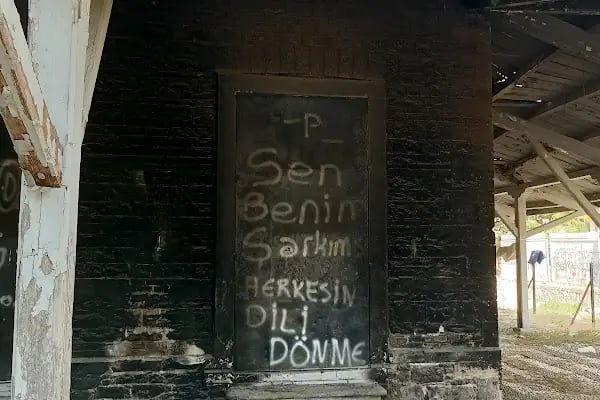 -P-
Sen
Benim
Sarkım
HERKESİN
DİLİ
DÖNME